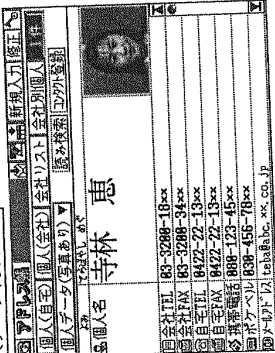 アドレス 新規入力 修正
個人(自宅) 個人(会社) 会社リスト 会社別個人
個人データ(写真あり) ▼ 読み検索 コンタクト登録
よみ てらばやし めぐ
個人名 寺林 恵
会社TEL 03-3200-18xx
会社FAX 03-3200-34xx
自宅TEL 0422-22-13xx
自宅FAX 0422-22-13xx
携帯電話 080-123-45xx
ポケベル 030-456-78xx
メールアドレス teba@abc.xx.co.jp